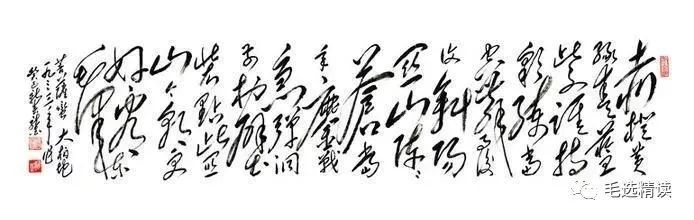 赤橙黄
绿青蓝
紫谁持
彩练当
空舞雨后
复斜阳
关山阵阵
蒼当
年鏖战
急弹洞
前村壁
装點此关
山今朝更
好看
毛泽东
菩萨蛮 大柏地
一九三三年
毛选精读